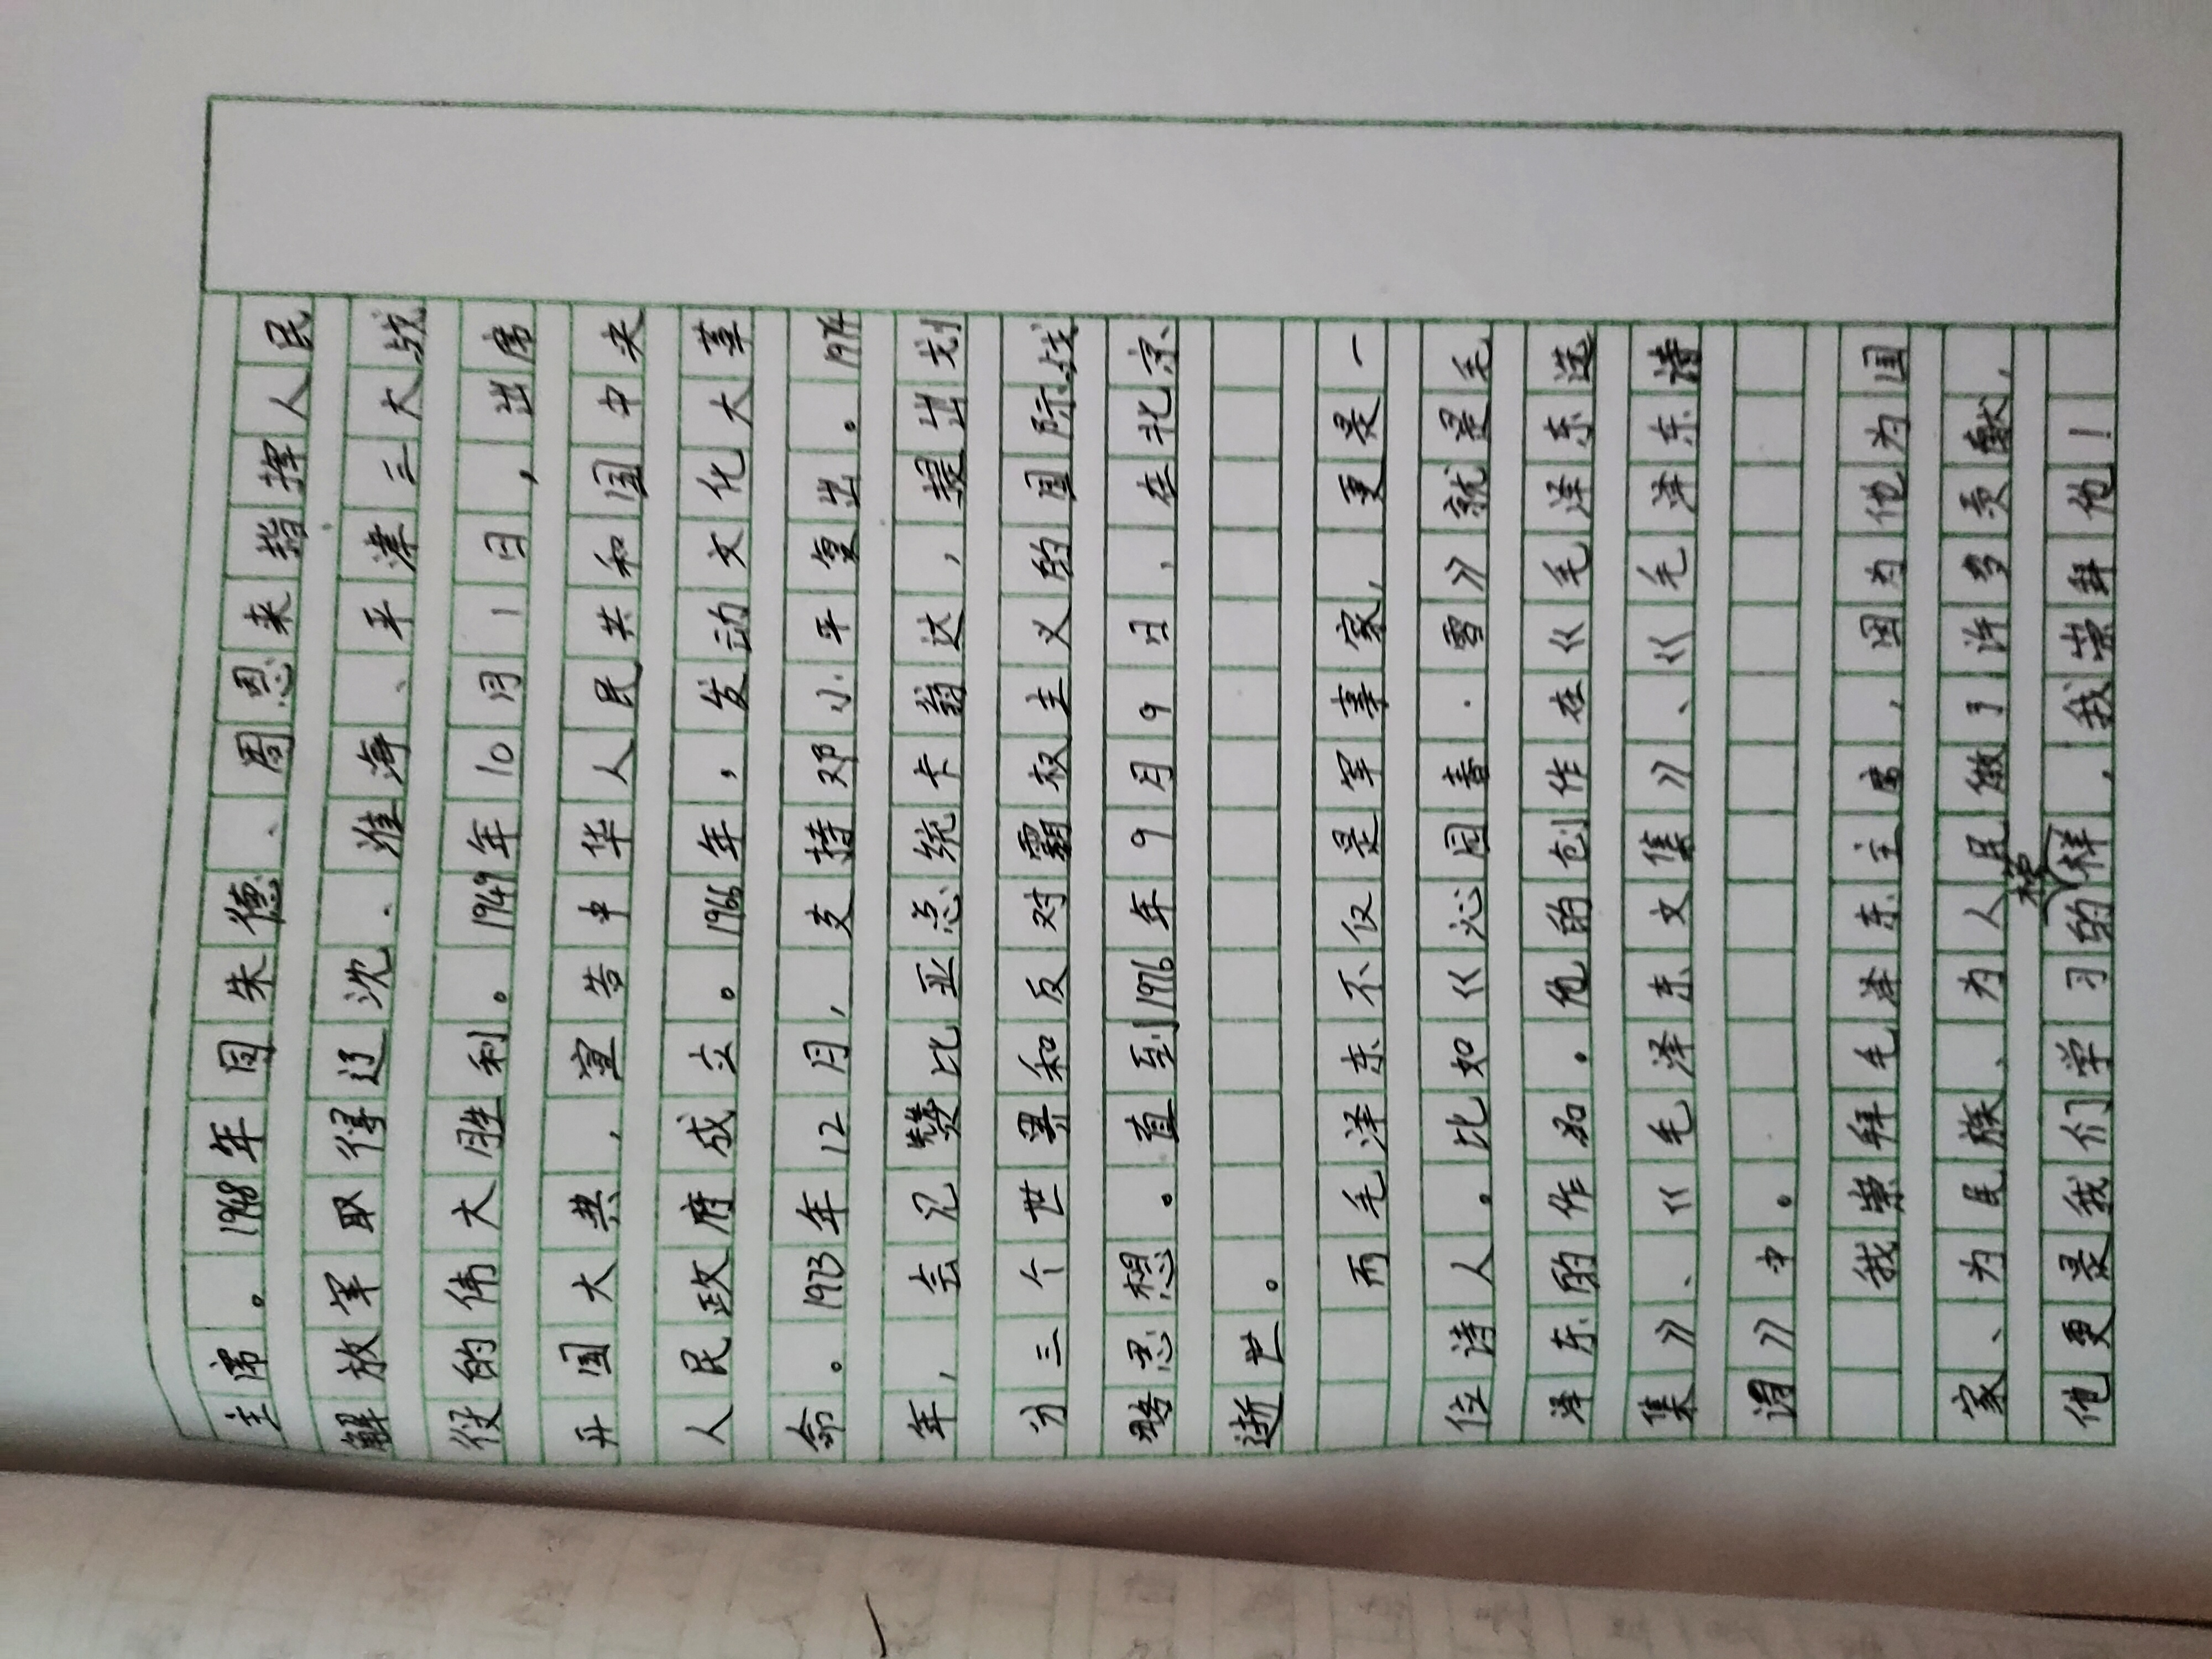 主席。1948年同朱德、周恩来指挥人民
解放军取得辽沈、淮海、平津三大战
役的伟大胜利。1949年10月1日,出席
开国大典,宣告中华人民共和国中央
人民政府成立。1966年,发动文化大革
命。1973年12月,支持邓小平复出。1974
年,会见赞比亚总统卡翁达,提出划
分三个世界和反对霸权主义的国际战
略思想。直到1976年9月9日,在北京
逝世。
而毛泽东不仅是军事家,更是一
位诗人。比如《沁园春·雪》就是毛
泽东的作品。他的创作在《毛泽东选
集》、《毛泽东文集》、《毛泽东诗
词》中。
我崇拜毛泽东主席,因为他为国
家、为民族、为人民做了许多贡献,
他更是我们学习的榜样,我崇拜他!